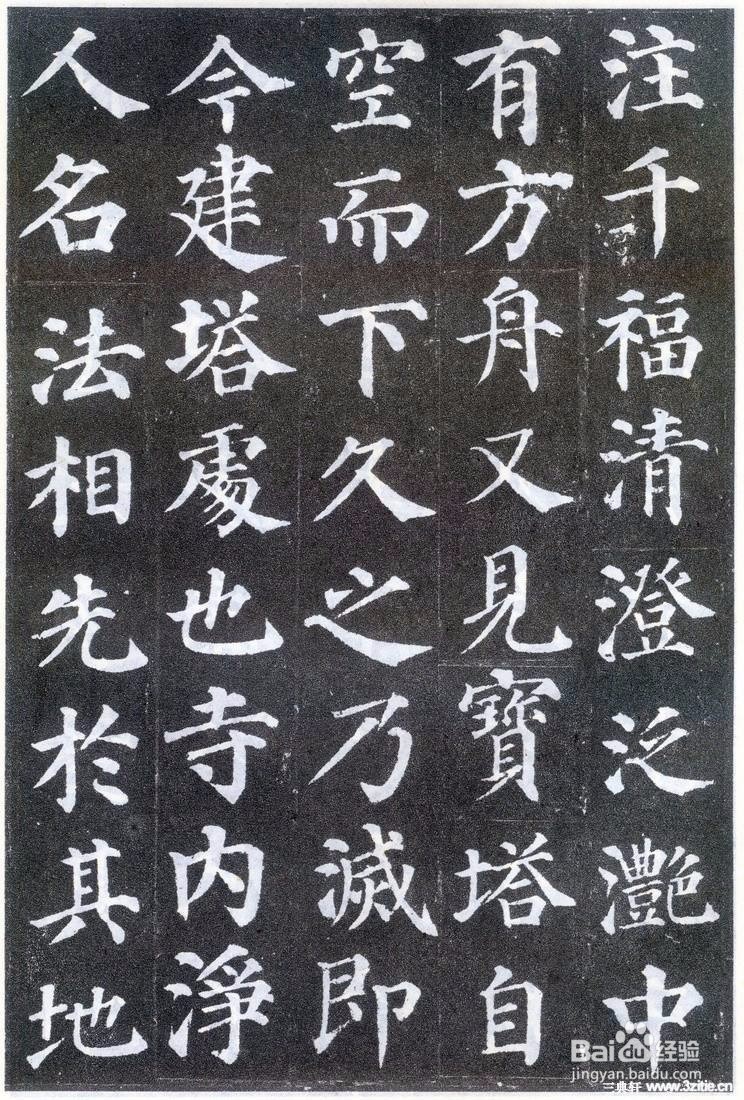 注千福清澄泛灔中
有方舟又見寶塔自
空而下久之乃滅即
今建塔處也寺内淨
人名法相先於其地
Baidu经验
jingyan.baidu.com
三典轩 www.3zitie.cn